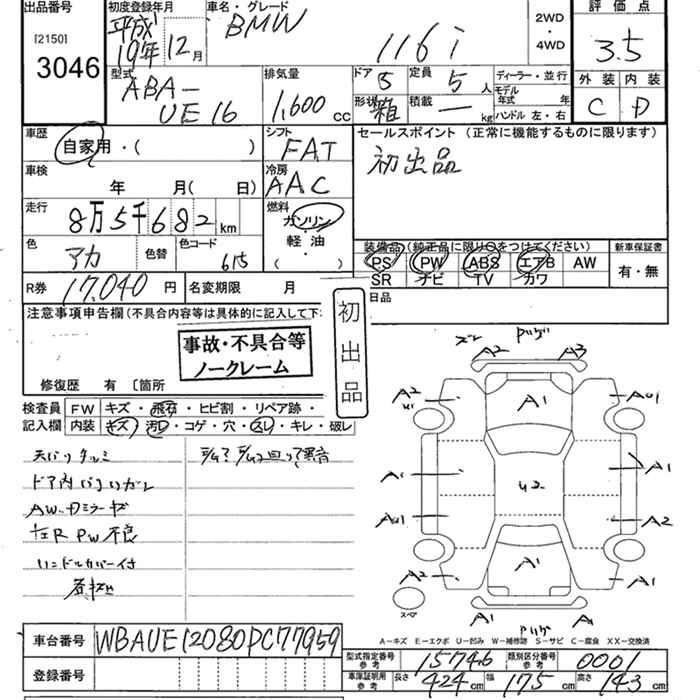 出品番号
[2150]
3046
初度登録年月
平成19年12月
車名・グレード
BMW
116i
2WD
・
4WD
評価点
3.5
外装 内装
C D
型式
ABA-
UE16
排気量
1,600 cc
ドア 5
定員 5人
形状 箱
積載 — kg
ディーラー・並行
モデル年式 年
ハンドル 左・右
車歴
自家用・( )
シフト
FAT
セールスポイント (正常に機能するものに限ります)
初出品
車検
年 月( 日)
冷房
AAC
走行
8万5千682km
燃料
ガソリン
軽油
・
( )
色
アカ
色替
色コード
615
装備品(純正品に限り○をつけてください)
新車保証書
PS PW ABS エアB AW
SR ナビ TV カワ
有・無
R券 17,040 円
名変期限 月
日品
注意事項申告欄(不具合内容等は具体的に記入して下
事故・不具合等
ノークレーム
初出品
修復歴 有 〔箇所
検査員
記入欄
FW キズ・飛石・ヒビ割・リペア跡・
内装 キズ・汚レ・コゲ・穴・スレ・キレ・破レ
天バリタルミ
AW・Dミラーキズ
左R PW不良
ハンドルカバー付
A2 A3
A2 A1 AU1
A1 U2 A1
AU1 A2
A2 A1 A1
A1 A
スペア
A-キズ E-エクボ U-凹み W-補修跡 S-サビ C-腐食 XX-交換済
車台番号 WBAUE12080PC77959
登録番号
型式指定番号 参考 15746
類別区分番号 参考 0001
車庫証明用 参考 長さ 424cm 幅 175cm 高さ 143cm